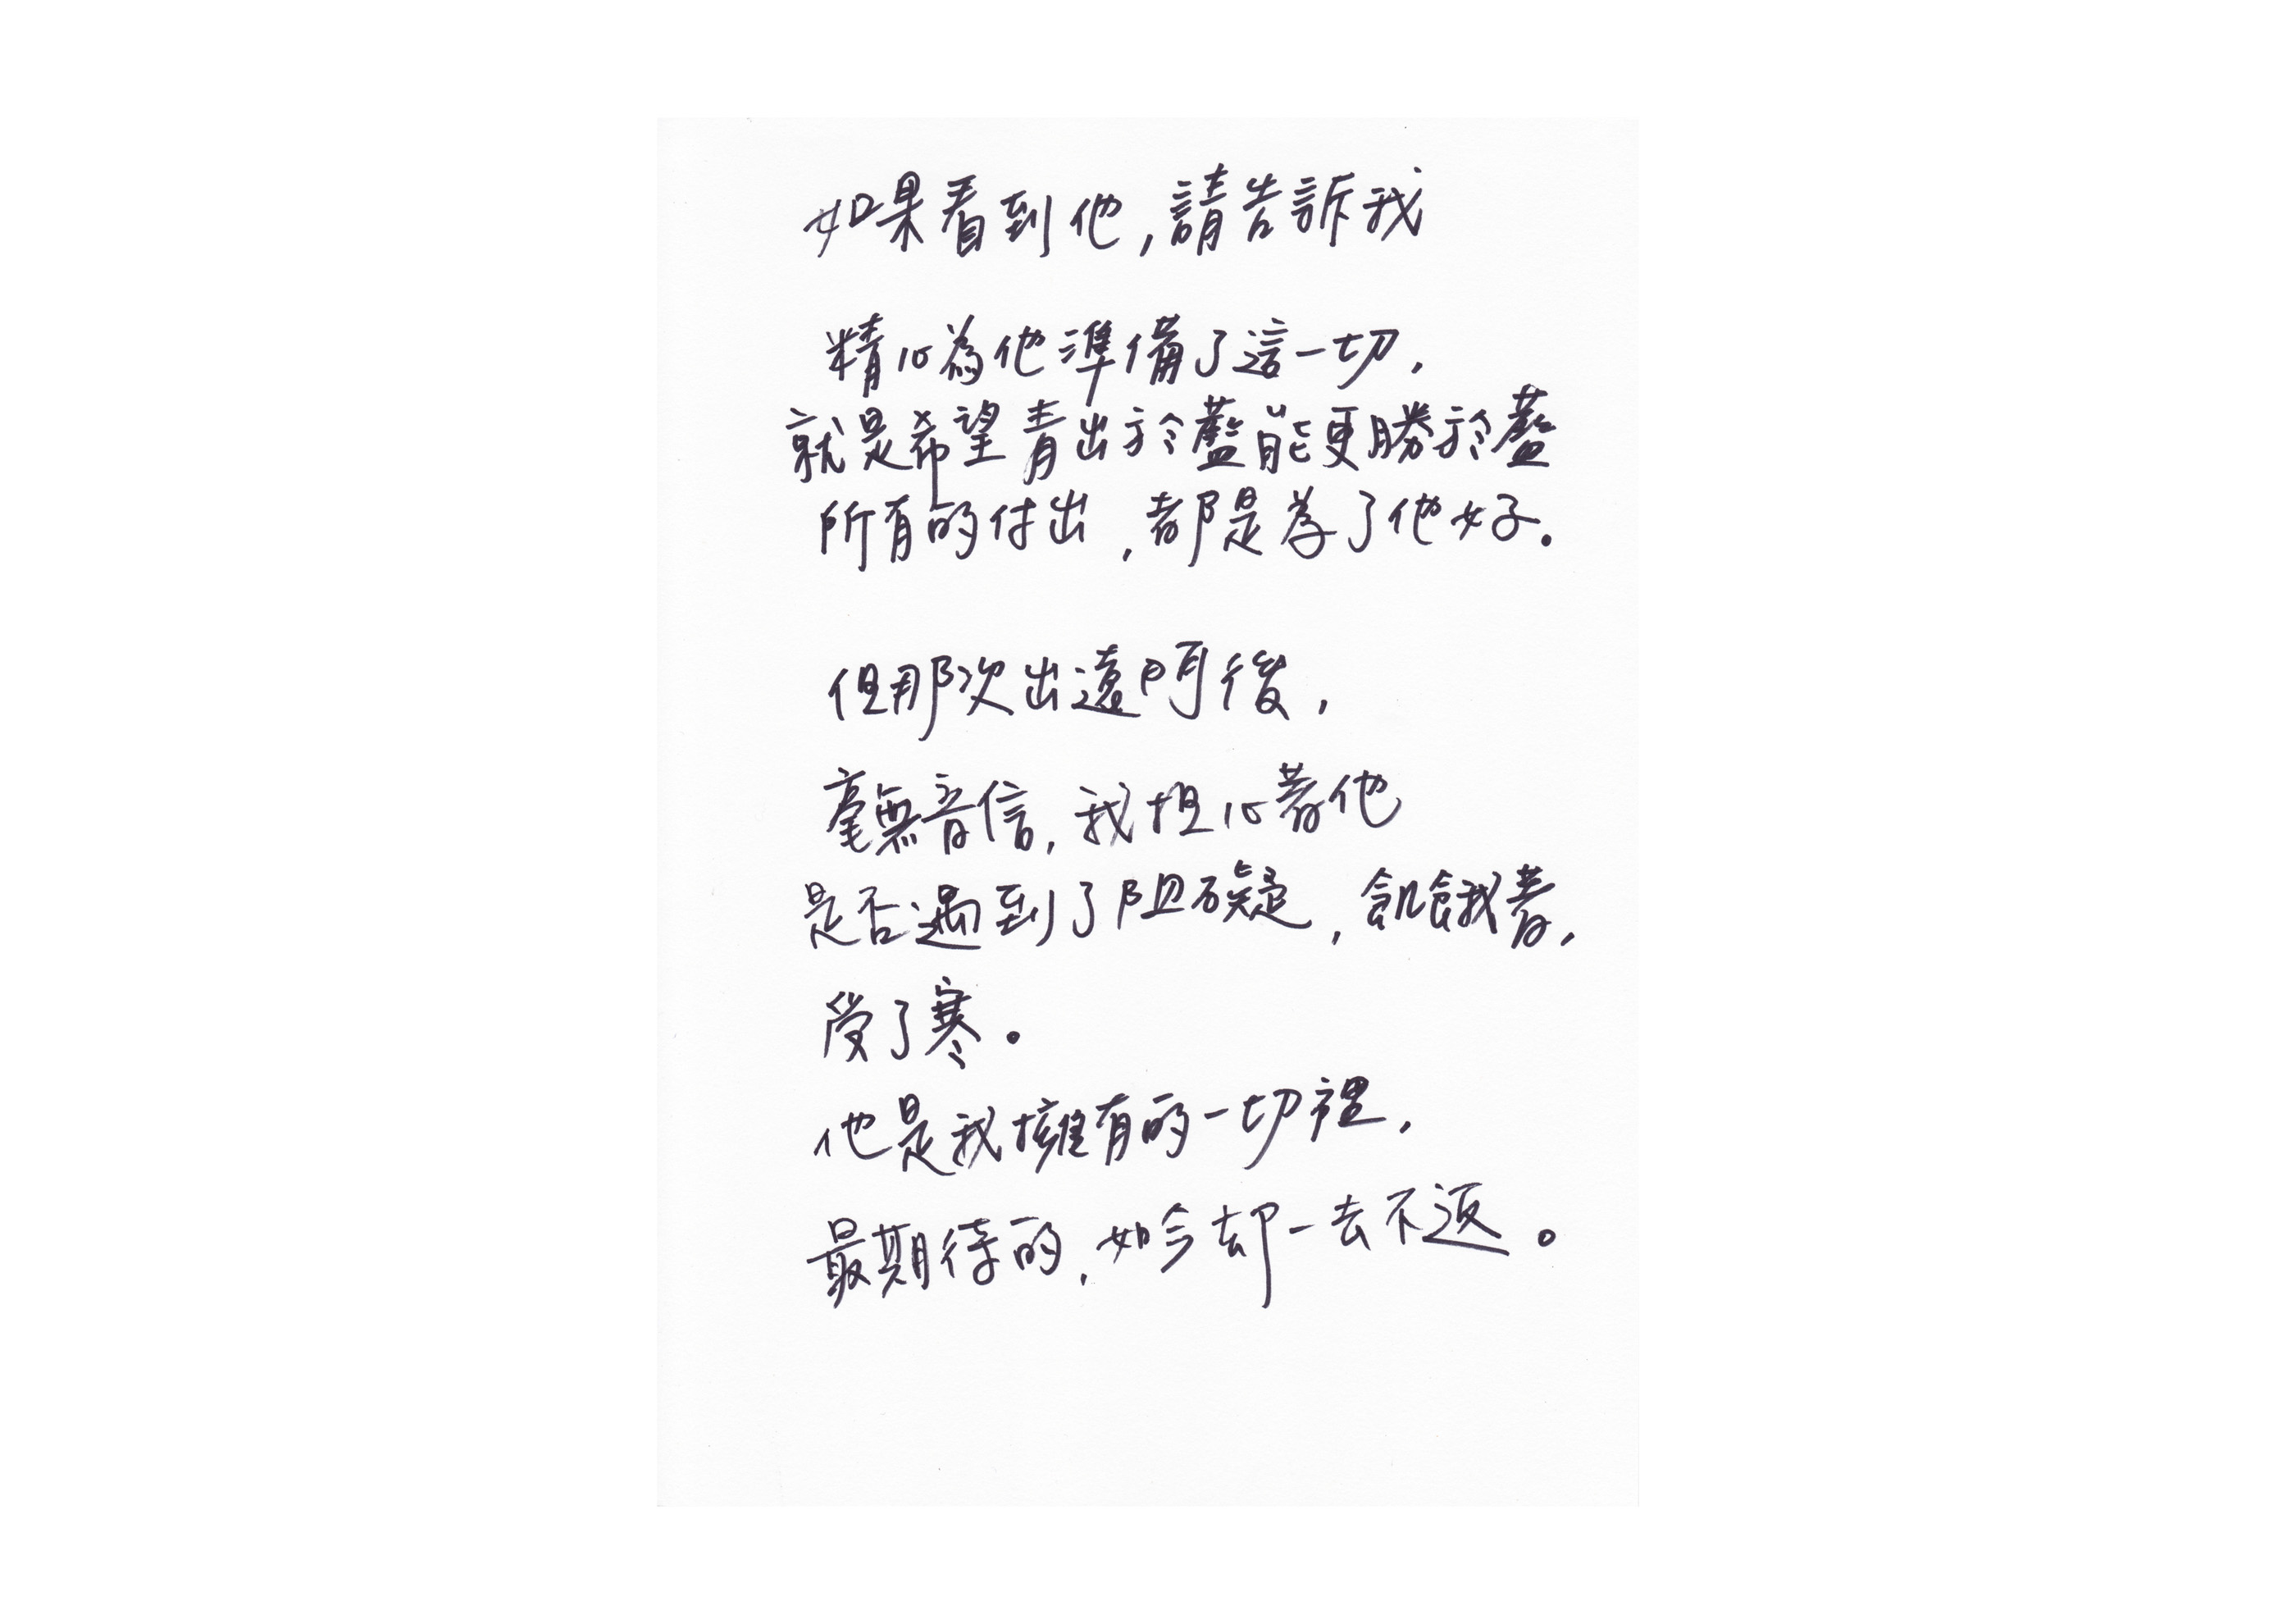 如果看到他,請告訴我
精心為他準備了這一切,
就是希望青出於藍能更勝於藍
所有的付出,都是為了他好。
但那次出遠門後,
毫無音信,我担心著他
是否遇到了阻礙,飢餓著,
受了寒。
他是我擁有的一切裡,
最期待的,如今却一去不返。